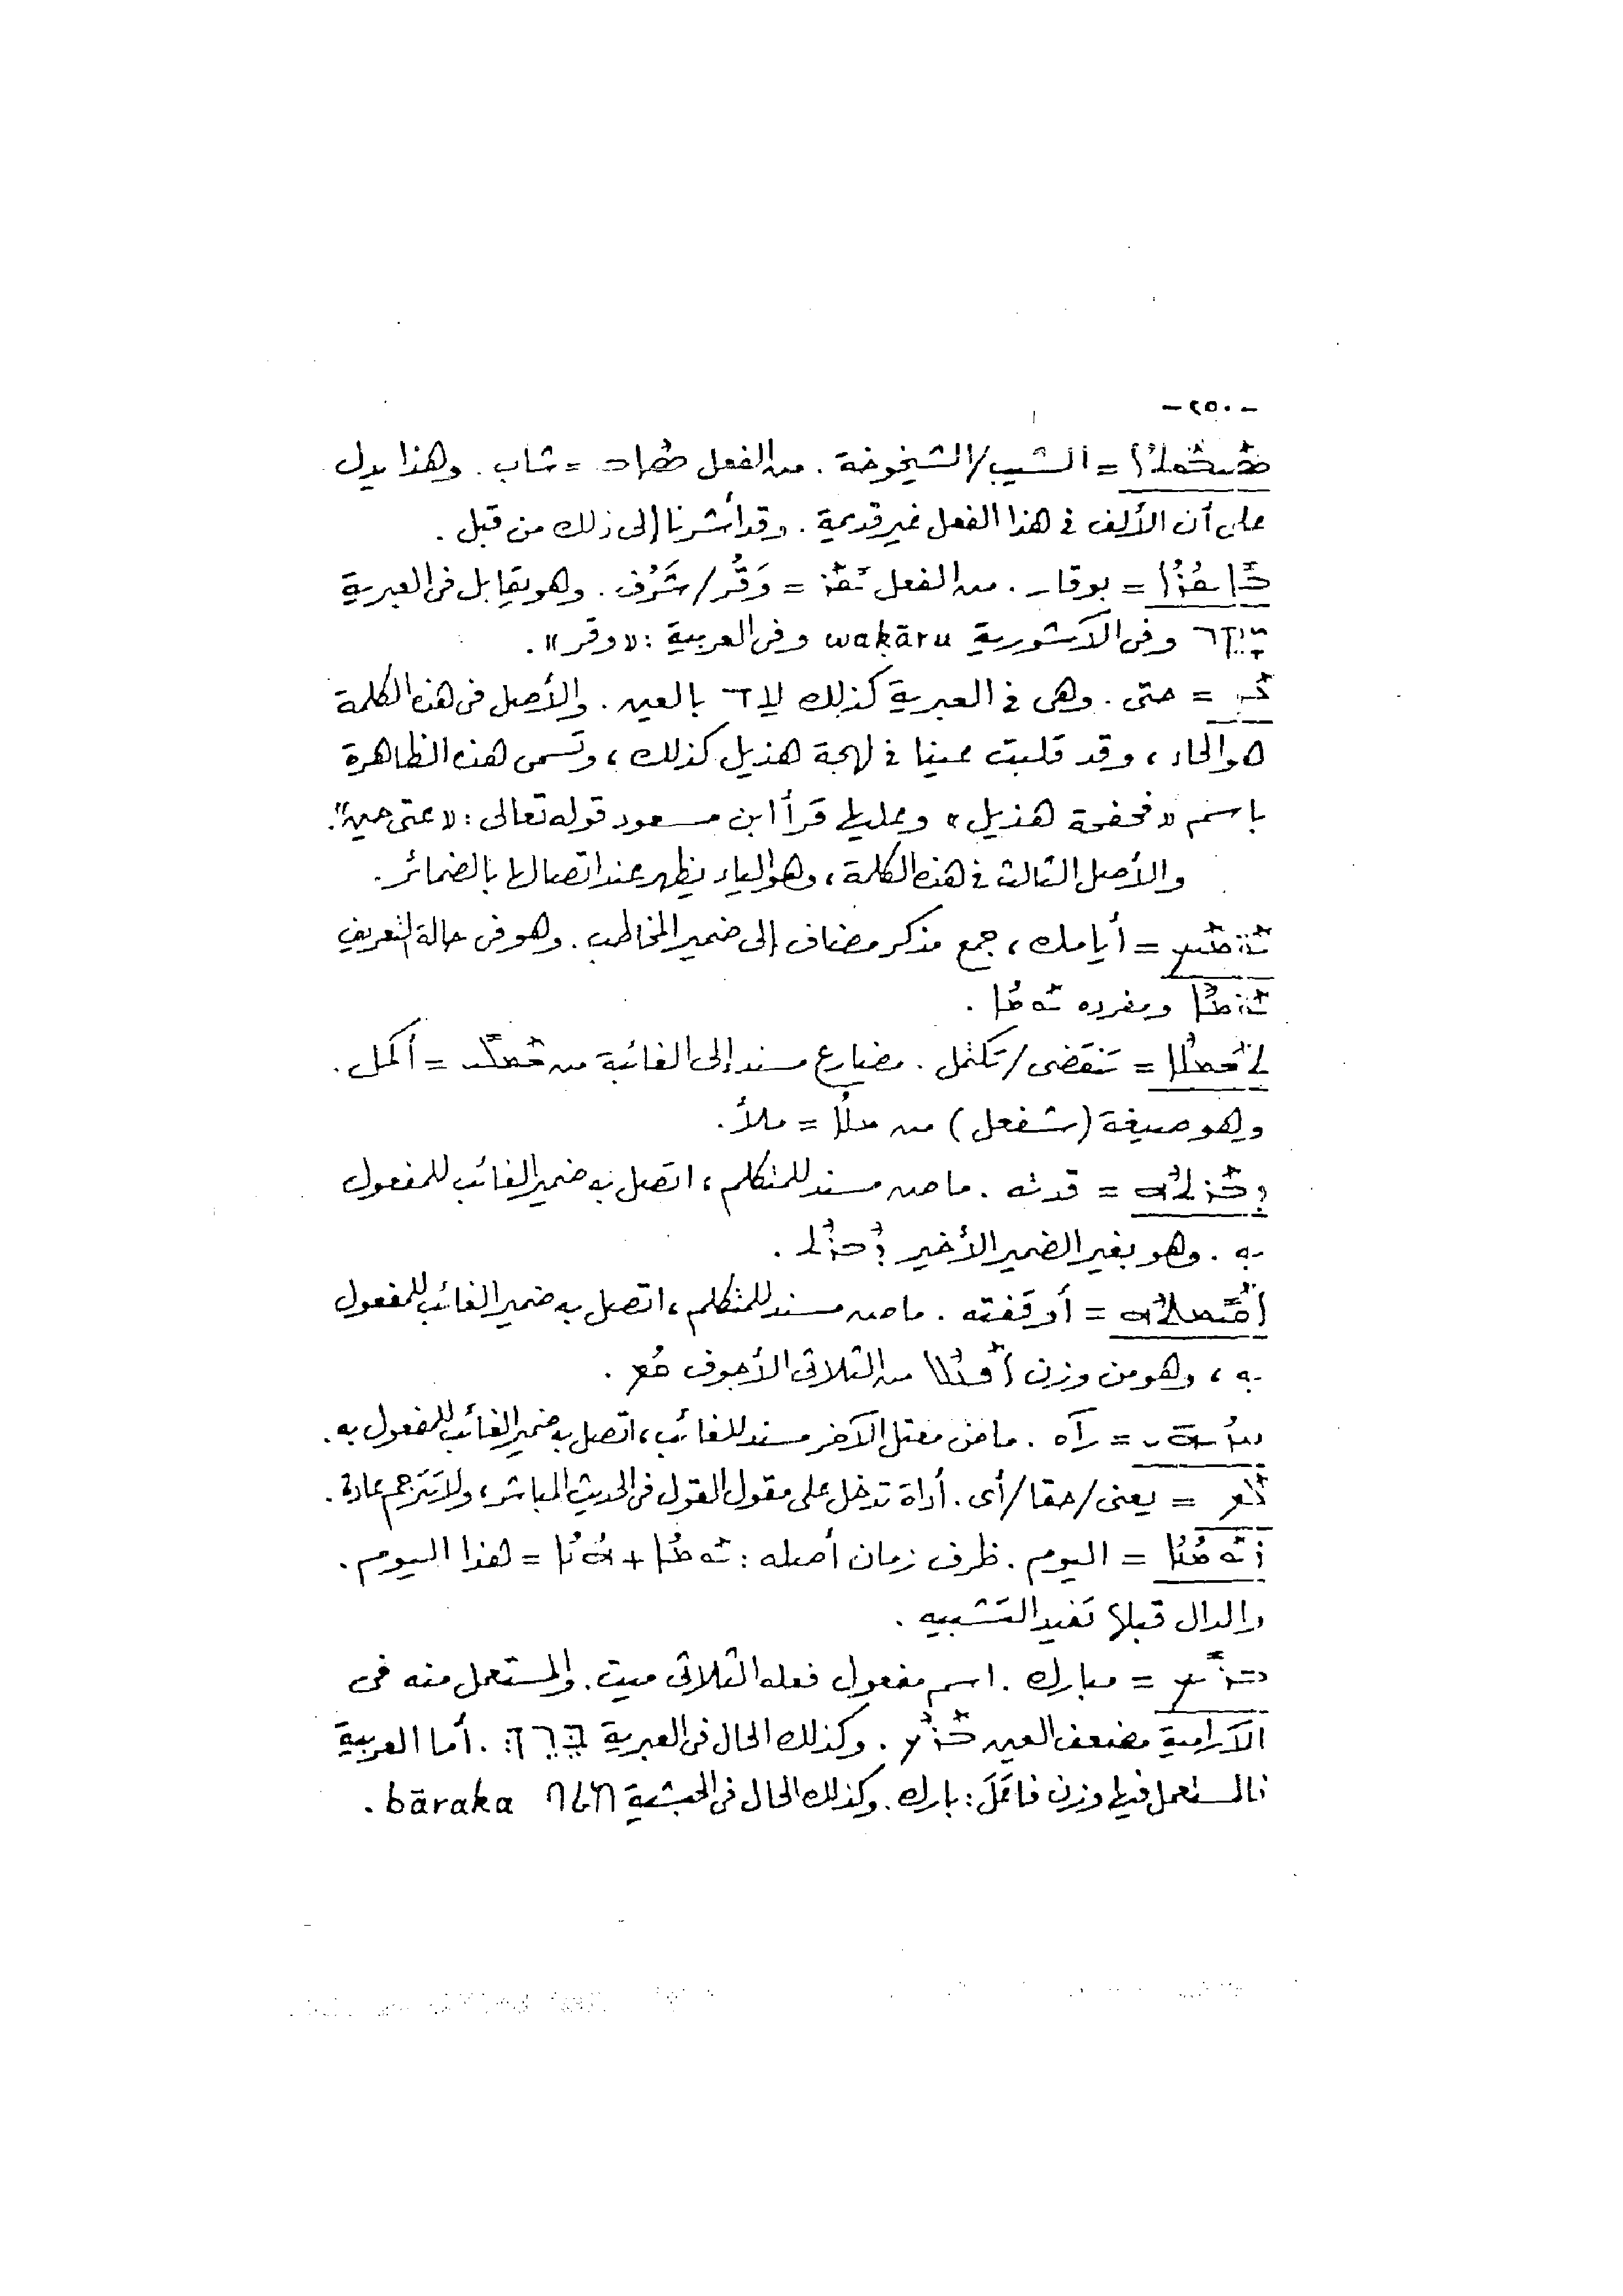 -٢٥٠-
ܣܰܝܒܽܘܬܳܐ = الشيب/الشيخوخة. من الفعل ܣܐܒ = شاب. وهذا يدل
على أن الألف فى هذا الفعل غير قديمة. وقد أشرنا إلى ذلك من قبل.
ܒܺܐܝܩܳܪܳܐ = بوقار. من الفعل ܝܺܩܰܪ = وَقُر/شَرُف. وهو يقابل فى العبرية
יקר وفى الآشورية waḳāru وفى العربية: «وقر».
ܥܰܕ = حتى. وهى فى العبرية كذلك עד بالعين. والأصل فى هذه الكلمة
هو الحاء، وقد قلبت عينا فى لهجة هذيل كذلك، وتسمى هذه الظاهرة
باسم «فحفحة هذيل» وعليها قرأ ابن مسعود قوله تعالى: «عتى حين».
والأصل الثالث فى هذه الكلمة، وهو الياء يظهر عند اتصالها بالضمائر.
ܝܰܘ̈ܡܰܝܟ = أيامك، جمع مذكر مضاف إلى ضمير المخاطب. وهو فى حالة التعريف
ܝܰܘ̈ܡܶܐ ومفرده ܝܰܘܡܳܐ.
= تنقضى/تكتمل. مضارع مسند إلى الغائبة من ܫܰܡܠܺܝ = أكمل.
وهو صيغة (شفعل) من ܡܠܳܐ = ملأ.
ܕܒܰܪܬܶܗ = قدته. ماض مسند للمتكلم، اتصل به ضمير الغائب للمفعول
به. وهو بغير الضمير الأخير ܕܶܒܪܶܬ.
ܐܰܩܺܝܡܬܶܗ = أوقفته. ماض مسند للمتكلم، اتصل به ضمير الغائب للمفعول
به، وهو من وزن من الثلاثى الأجوف ܩܳܡ.
ܚܙܳܝܗܝ = رآه. ماض معتل الآخر مسند للغائب، اتصل به ضمير الغائب للمفعول به.
ܠܰܡ = يعنى/حقا/أى. أداة تدخل على مقول القول فى الحديث المباشر، ولا تترجم عادة.
ܕܝܰܘܡܳܢܳܐ = اليوم. ظرف زمان أصله: ܝܰܘܡܳܐ + ܗܳܢܳܐ = هذا اليوم.
والدال قبلها تفيد التشبيه.
ܒܪܺܝܟ = مبارك. اسم مفعول فعله الثلاثى ميت. والمستعمل منه فى
الآرامية مضعف العين ܒܰܪܶܟ. وكذلك الحال فى العبرية בֵּרֵךְ. أما العربية
فالمستعمل فيها وزن فاعَلَ: بارك. وكذلك الحال فى الحبشية ባረከ bāraka.